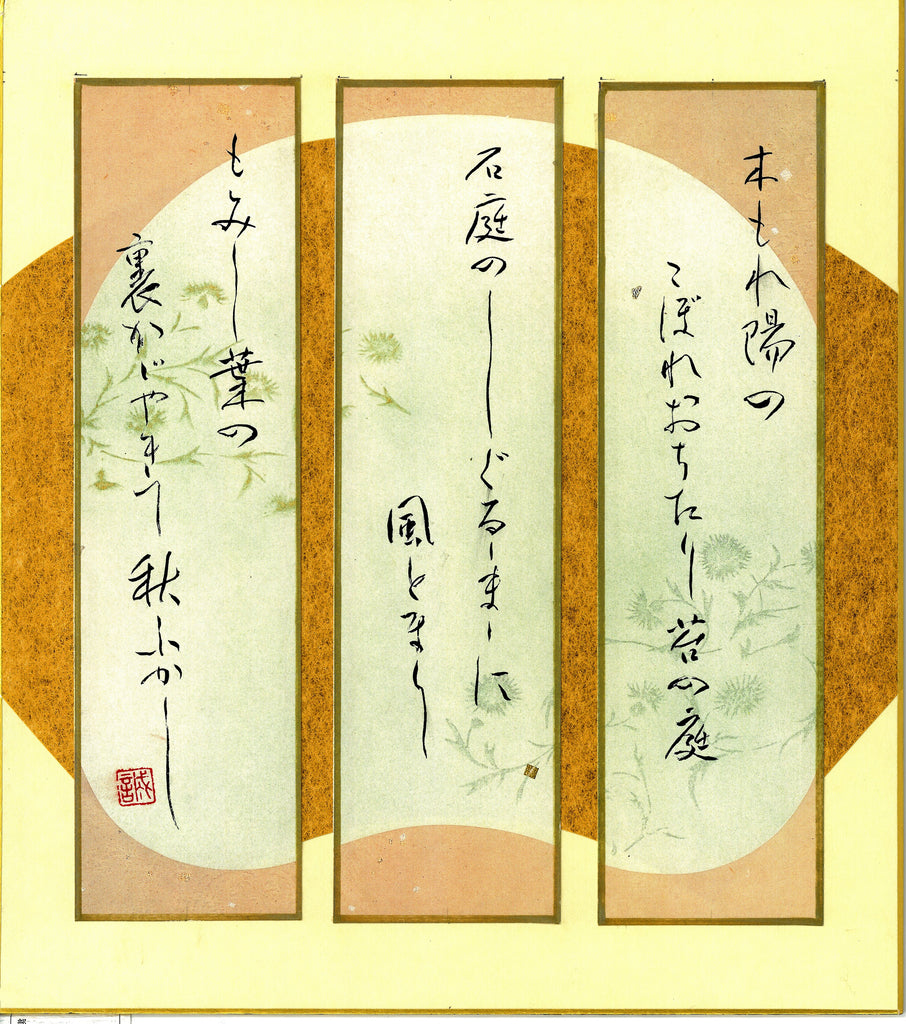 木もれ陽の
こぼれおちたり苔の庭
石庭のしぐるゝまゝに
風とまり
もみし葉の
裏かゞやきて 秋ふかし
誠